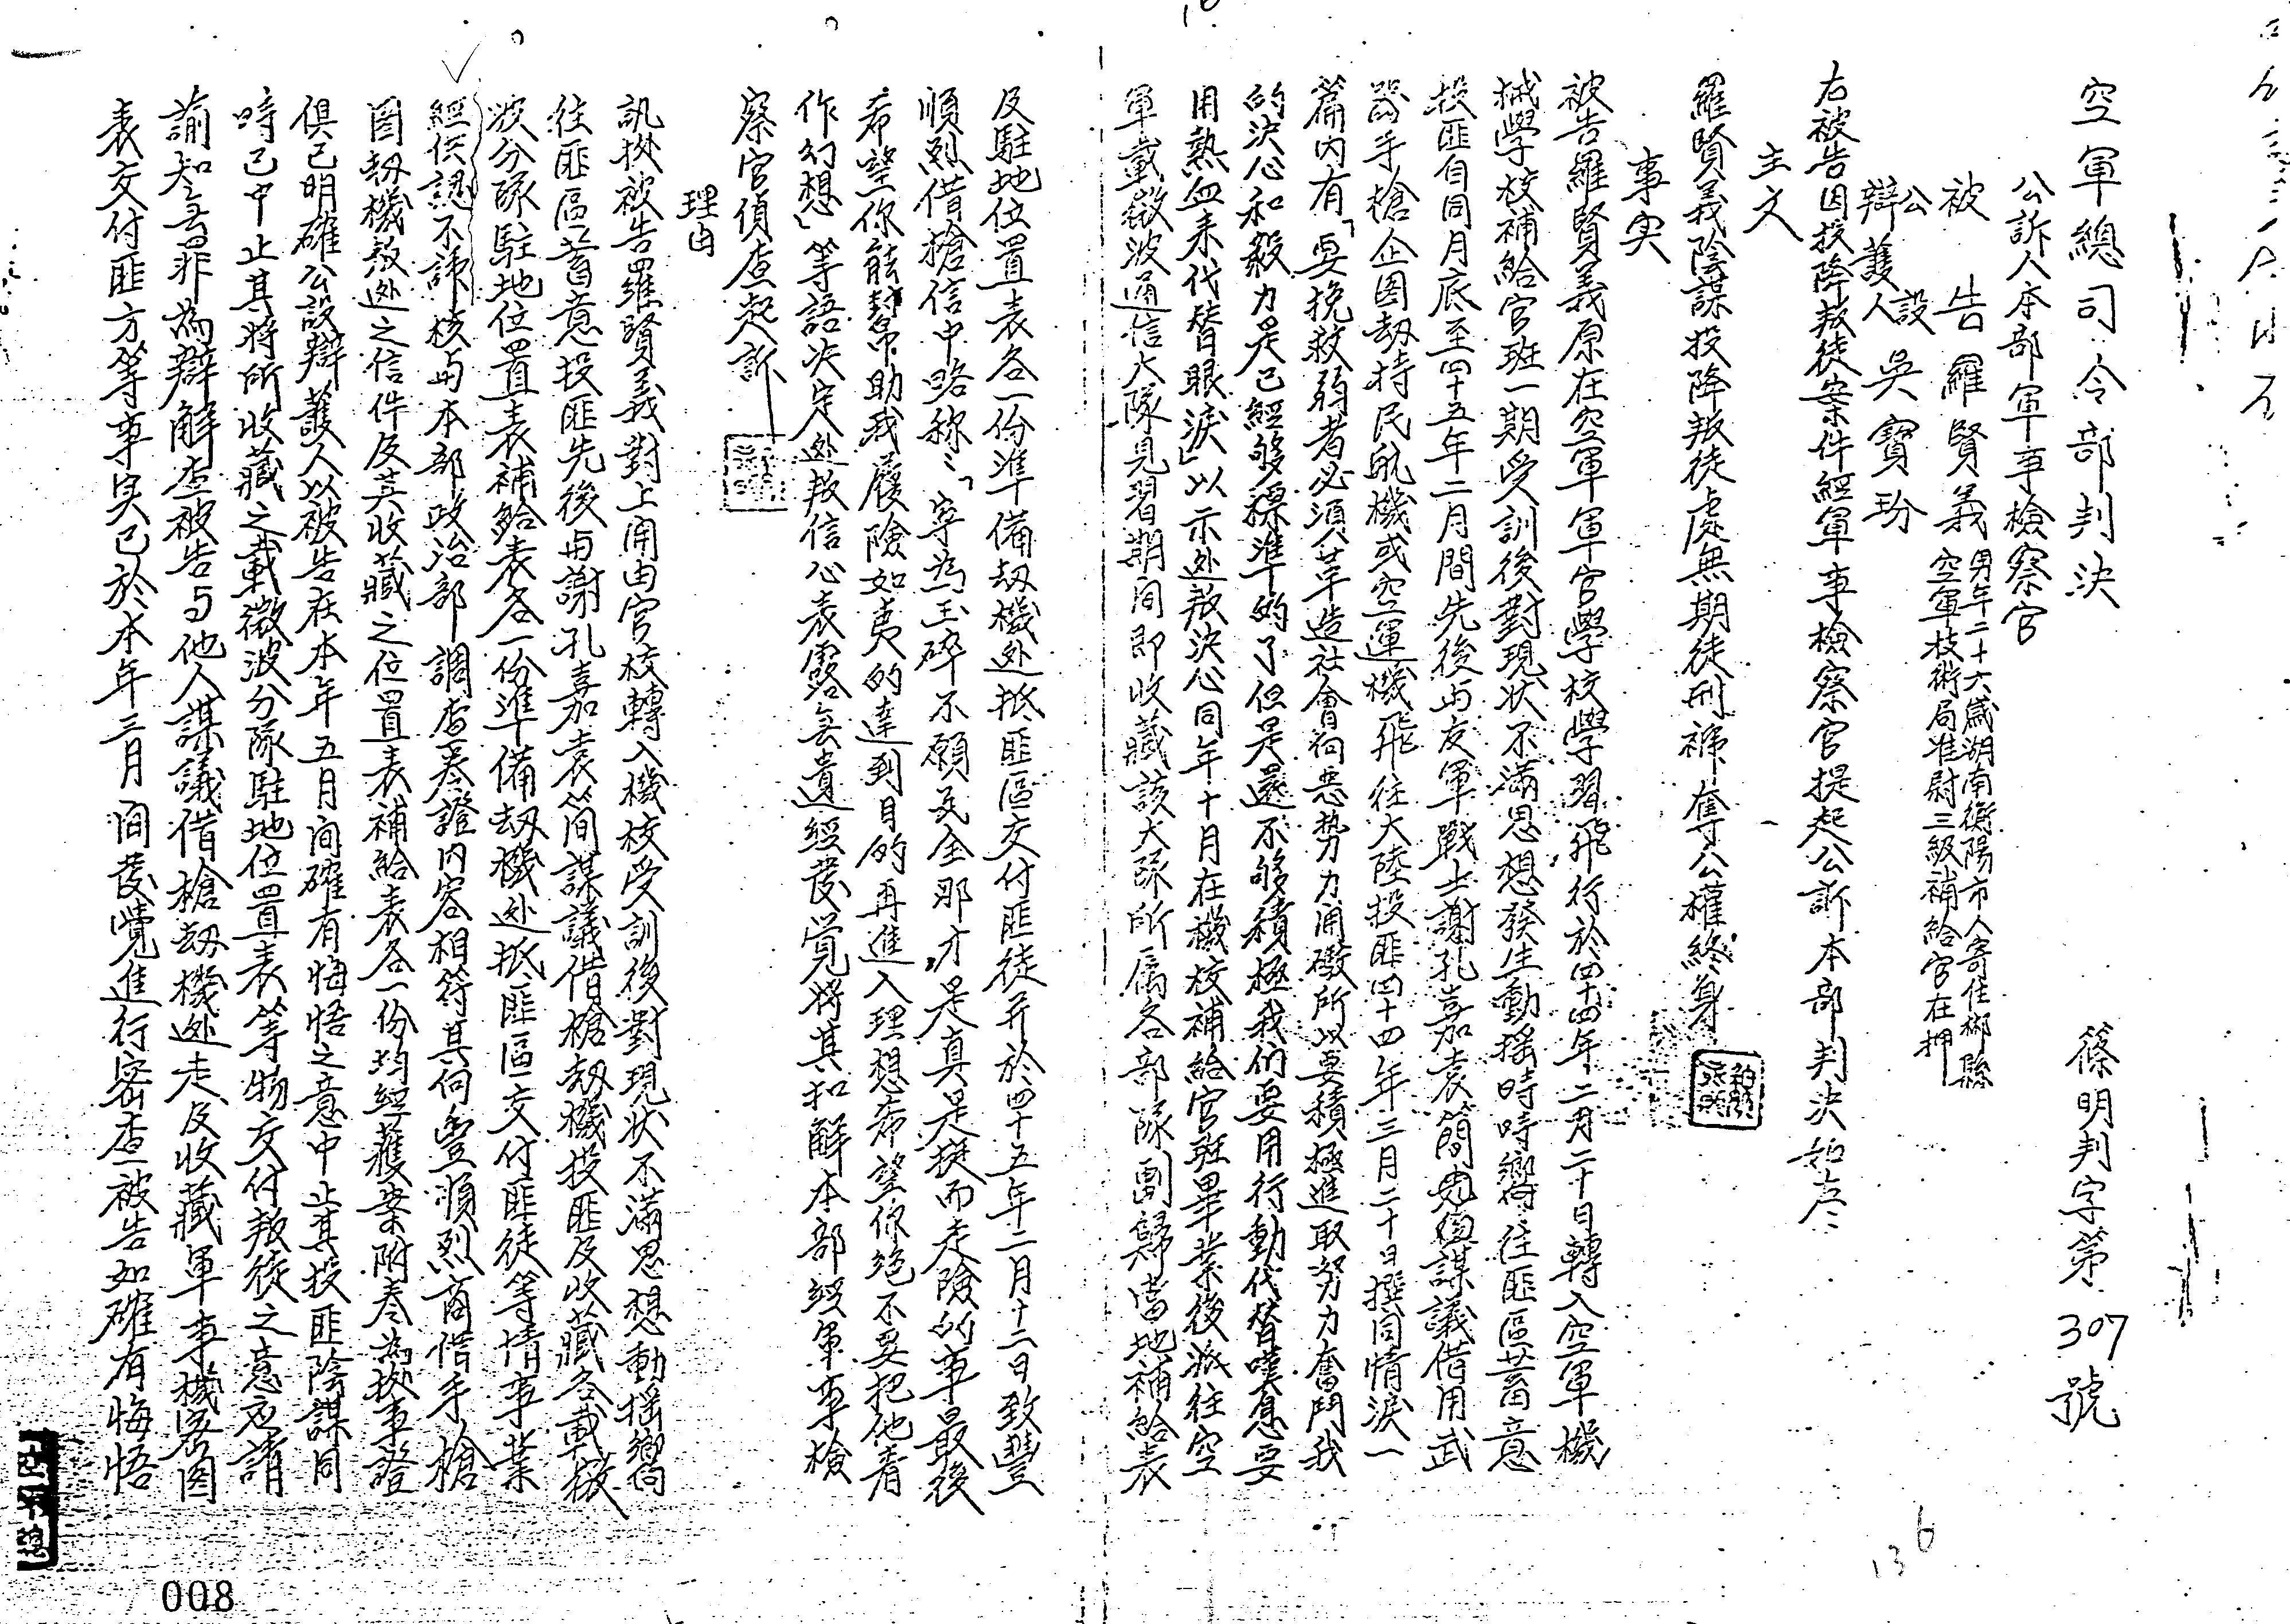 空軍總司令部判決
篠明判字第307號
公訴人本部軍事檢察官
被告羅賢義
男年二十六歲湖南衡陽市人寄住郴縣
空軍技術局准尉三級補給官在押
公設辯護人吳寶玢
右被告因投降叛徒案件經軍事檢察官提起公訴本部判決如左
主文
羅賢義陰謀投降叛徒處無期徒刑褫奪公權終身
事実
被告羅賢義原在空軍軍官學校學習飛行於四十四年二月二十日轉入空軍機
械學校補給官班一期受訓後對現状不滿思想發生動摇時時嚮往匪區蓄意
投匪自同月底至四十五年二月間先後与友軍戰士謝孔嘉袁簡謀議借用武
器手槍企图劫持民航機或空運機飛往大陸投匪四十四年三月二十日撰同情淚一
篇內有「要挽救弱者必須革造社會向惡势力開礮所以要積極進取努力奮鬥我
的決心和毅力是已經够標準的了但是還不够積極我们要用行動代替嘆息要
用熱血来代替眼淚」以示处叛決心同年十月在機校補給官班畢業後派往空
軍載微波通信大隊見習期间即收藏該大隊所属各部隊劃歸當地補給表
及駐地位置表各一份準備劫機处抵匪區交付匪徒并於四十五年二月十二日致豐
順烈借槍信中略称：「寧為玉碎不願瓦全那才是真是挺而走險的事最後
希望你能幫助我履險如夷的達到目的再進入理想希望你絕不要把他看
作幻想」等語決定处叛信心表露無遺經發覚将其扣解本部經軍事檢
察官偵查起訴
理由
訊據被告羅賢義對上開由官校轉入機校受訓後對現状不滿思想動摇嚮
往匪區蓄意投匪先後与謝孔嘉袁简謀議借槍劫機投匪及收藏各載微
波分隊駐地位置表補給表各一份準備劫機处抵匪區交付匪徒等情事業
經供認不諱核与本部政治部調查卷證內容相符其向豐順烈商借手槍
图劫機叛处之信件及其收藏之位置表補給表各一份均經獲案附卷為據事證
俱已明確公設辯護人以被告在本年五月间確有悔悟之意中止其投匪陰謀同
時已中止其将所收藏之載微波分隊駐地位置表等物交付叛徒之意应請
諭知無罪為辯解查被告与他人謀議借槍劫機处走及收藏軍事機密图
表交付匪方等事実已於本年三月间發覺進行密查被告如確有悔悟
008